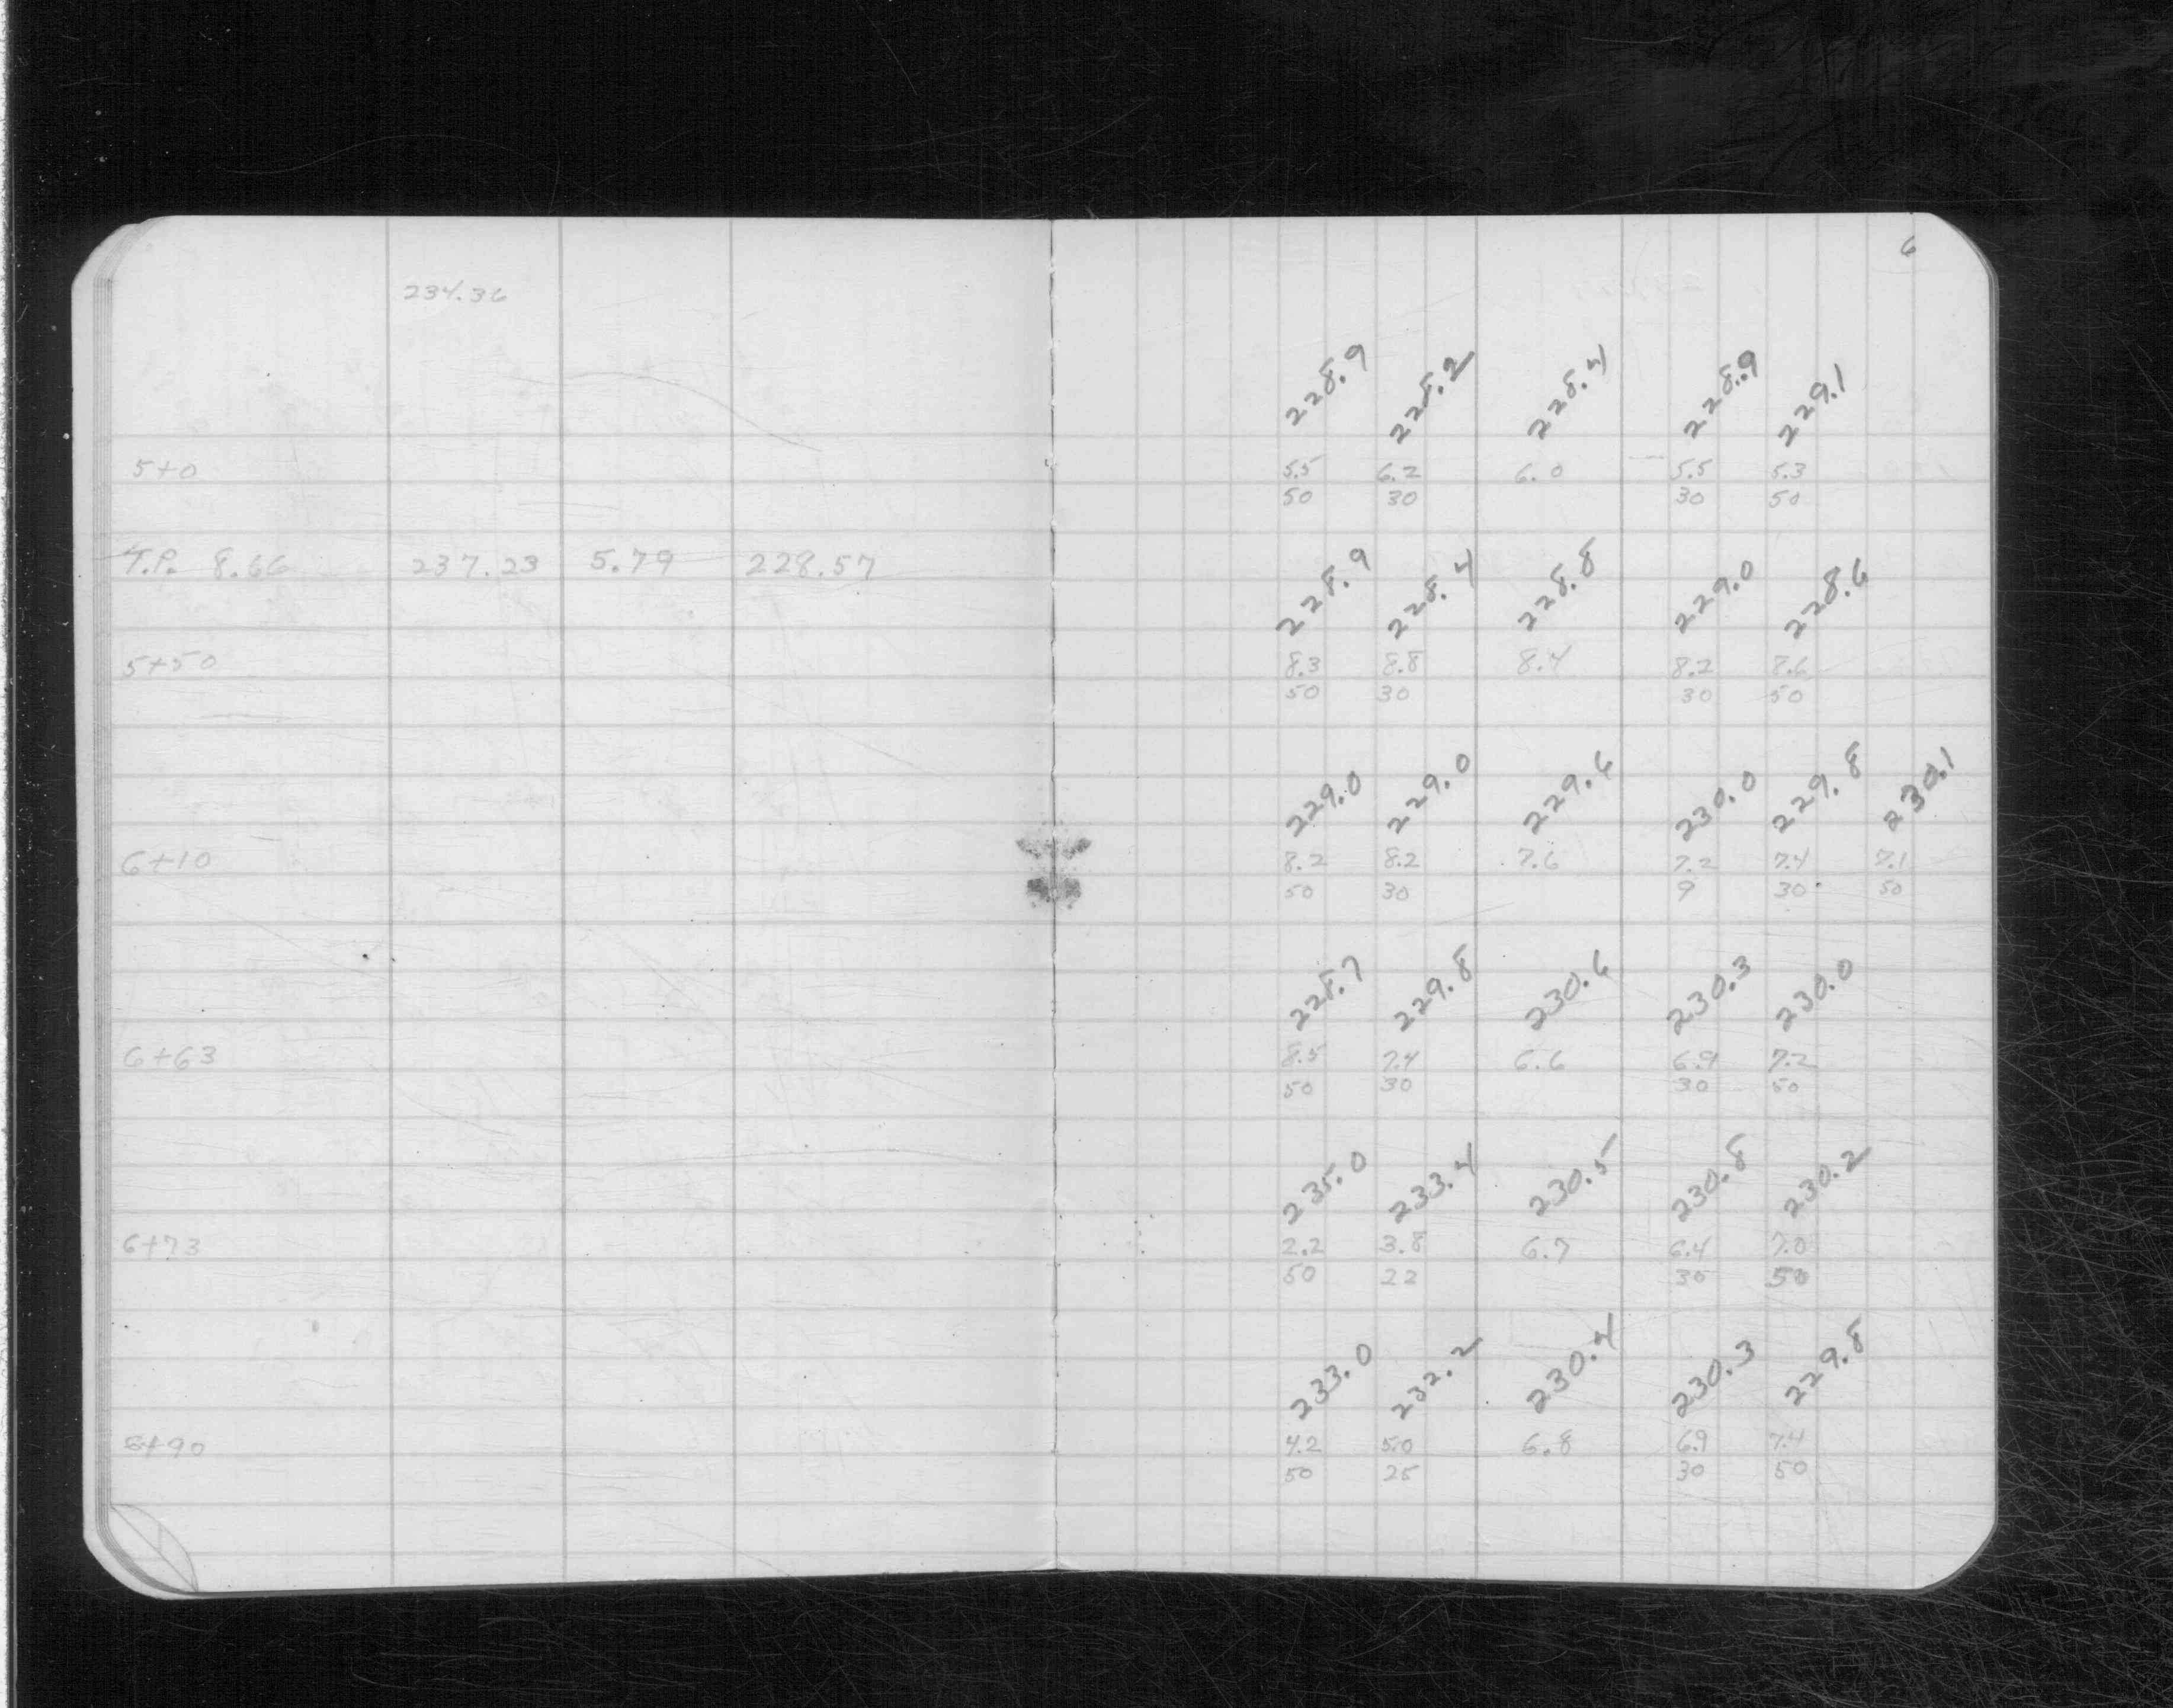 6
234.36
228.9 228.2 228.4 228.9 229.1
5+0 5.5 6.2 6.0 5.5 5.3
50 30 30 50
T.P. 8.66 237.23 5.79 228.57
228.9 228.4 228.8 229.0 228.6
5+50 8.3 8.8 8.4 8.2 8.6
50 30 30 50
229.0 229.0 229.6 230.0 229.8 230.1
6+10 8.2 8.2 7.6 7.2 7.4 7.1
50 30 9 30 50
228.7 229.8 230.6 230.3 230.0
6+63 8.5 7.4 6.6 6.9 7.2
50 30 30 50
235.0 233.4 230.5 230.8 230.2
6+73 2.2 3.8 6.7 6.4 7.0
50 22 30 50
233.0 232.2 230.4 230.3 229.8
4.2 5.0 6.8 6.9 7.4
50 25 30 50